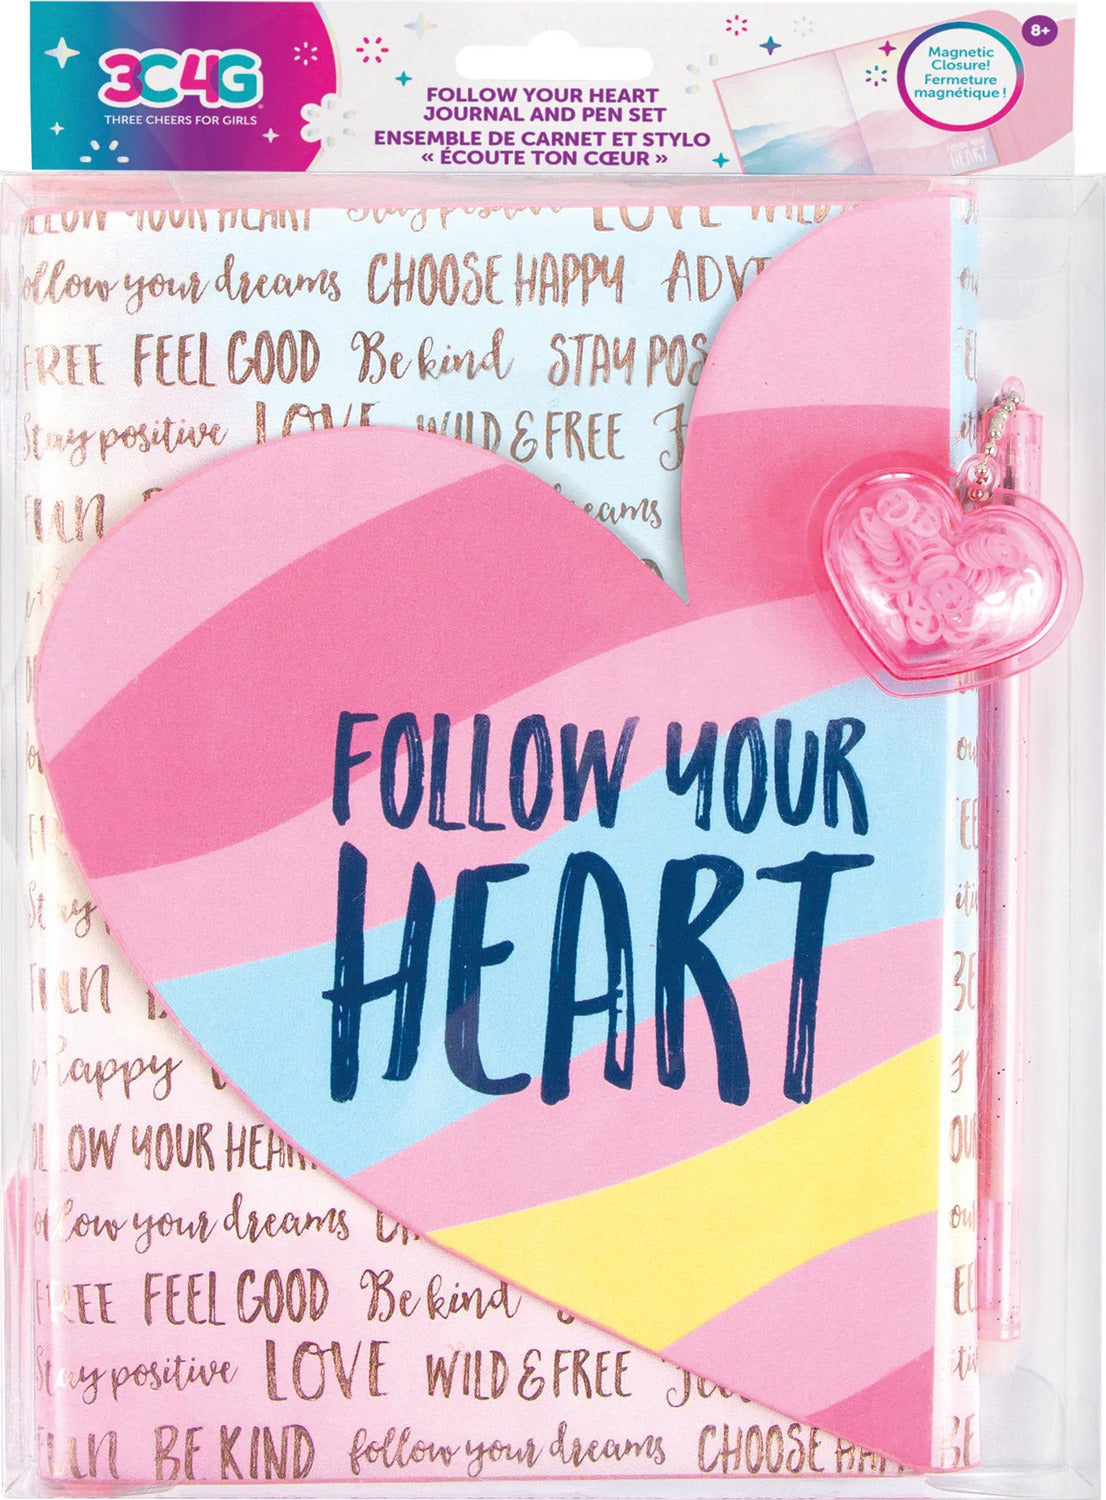 3C4G
THREE CHEERS FOR GIRLS
FOLLOW YOUR HEART
JOURNAL AND PEN SET
ENSEMBLE DE CARNET ET STYLO
« ÉCOUTE TON CŒUR »
Magnetic
Closure!
Fermeture
magnétique !
8+
FOLLOW YOUR
HEART
FOLLOW YOUR HEART Stay positive LOVE WILD
follow your dreams CHOOSE HAPPY ADVE
FREE FEEL GOOD Be kind STAY POS
Stay positive LOVE WILD & FREE
FUN
dreams
FOLLOW YOUR
HEART
FUN
happy
FOLLOW YOUR HEAR
follow your dreams
FREE FEEL GOOD Be kind
Stay positive LOVE WILD & FREE
FUN BE KIND follow your dreams CHOOSE HAP BE